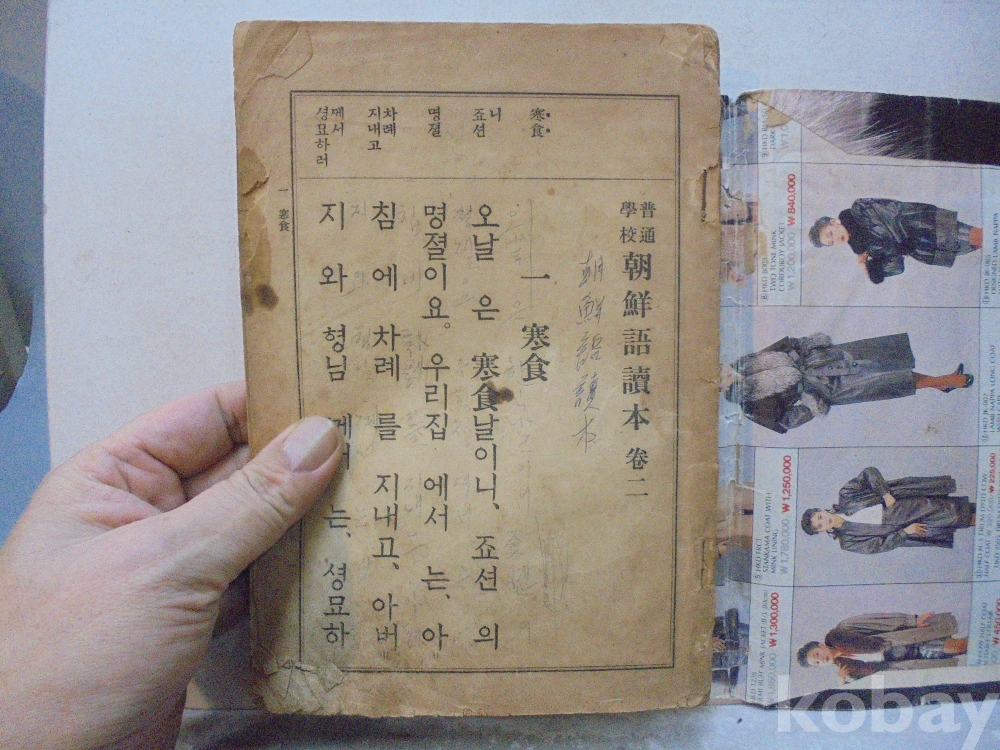 普通學校 朝鮮語讀本 卷二
朝鮮語讀本
一 寒食
오날 은 寒食날이니、죠션 의
명졀이요。우리집 에서 는、아
침 에 차례 를 지내고、아버
지 와 형님 는、셩묘하
寒食
니
죠션
명졀
차례
지내고
ᄭᅦ서
셩묘하러
一 寒食
₩840,000
HKD 8001
TWO TONE MINK
CORDUROY JACKET
₩1,200,000
₩1,250,000
STANKAMA COAT WITH
MINK LINING
₩1,780,000
₩1,300,000
₩225,000
kobay